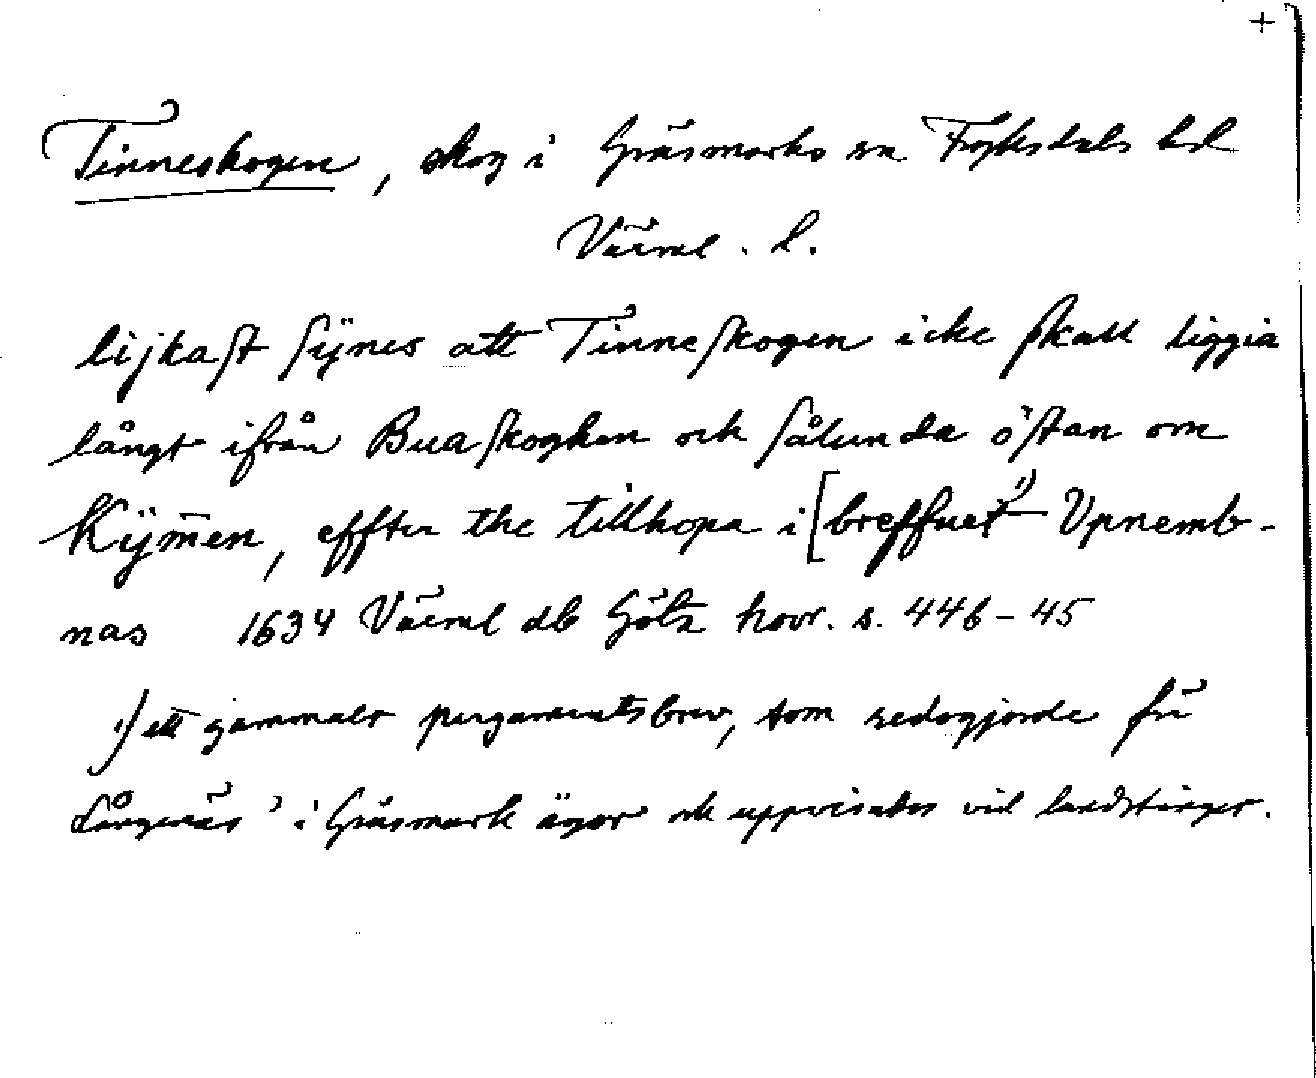 +
Tinneskogen, skog i Gräsmarks sn Fryksdals hd
Värml. l.
lijkast sÿnes att Tinneskogen icke skall liggia
långt ifrån Buaskoghen och sålunda östan om
Kÿm̄en, effter the tillhopa i [breffuet 1) Vpnemb-
nas 1634 Värml db Göta hovr. s. 446-45
1) ett gammalt pergamentsbrev, som redogjorde för
Långenäs' i Gräsmark ägor och uppvisades vid landstinget.